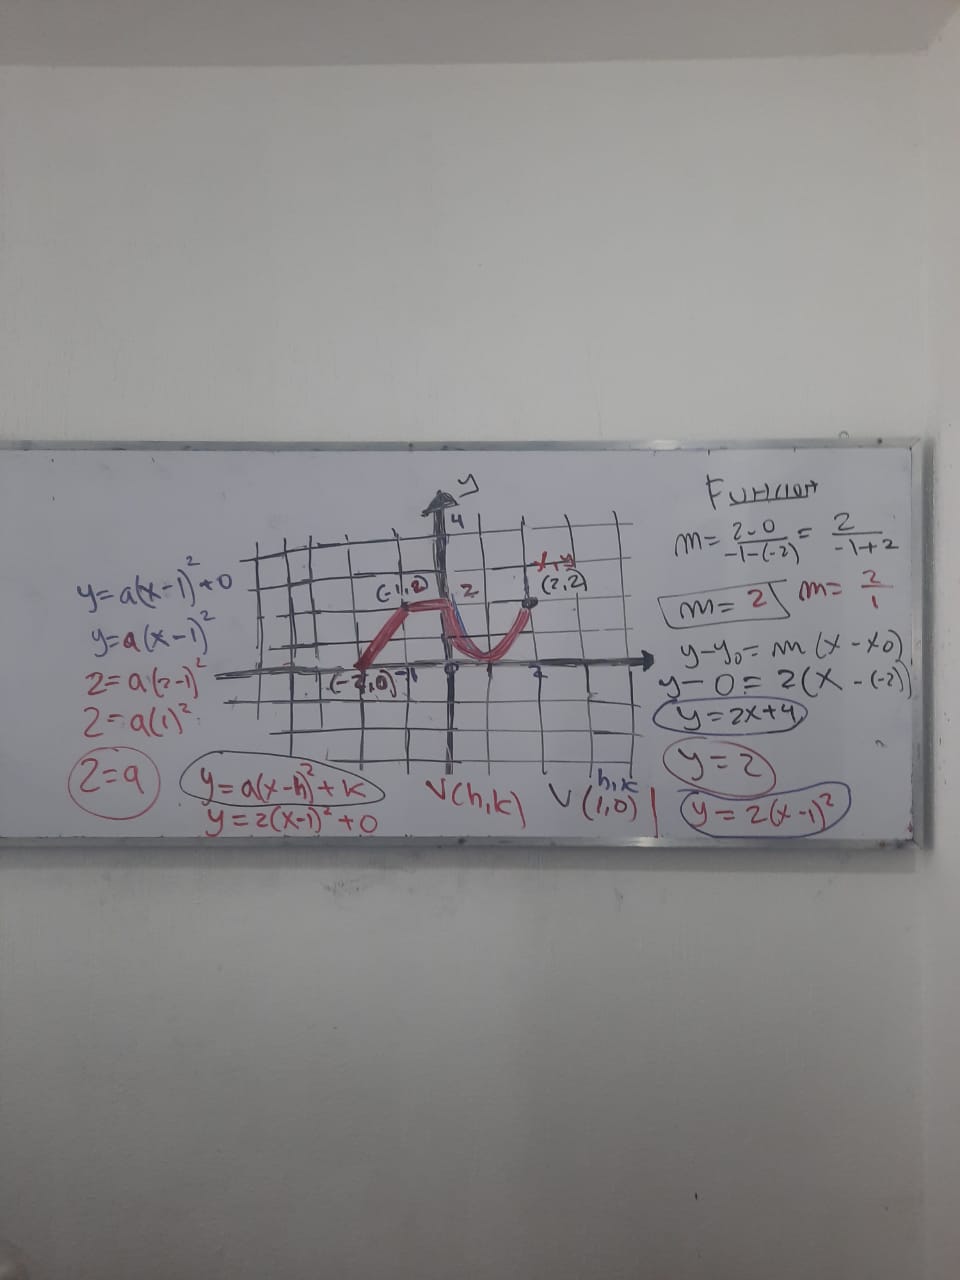 y=a(x-1)²+0
y=a(x-1)²
2=a(2-1)²
2=a(1)²
2=a
y=a(x-h)²+k
y=2(x-1)²+0
y
4
(-1,2)
2
x,y
(2,2)
(-2,0)
-1
0
2
V(h,k)
h,k
V(1,0)
Funcion
m= 2-0/-1-(-2) = 2/-1+2
m= 2 m= 2/1
y-y₀= m(x-x₀)
y-0= 2(x-(-2))
y=2x+4
y=2
y=2(x-1)²